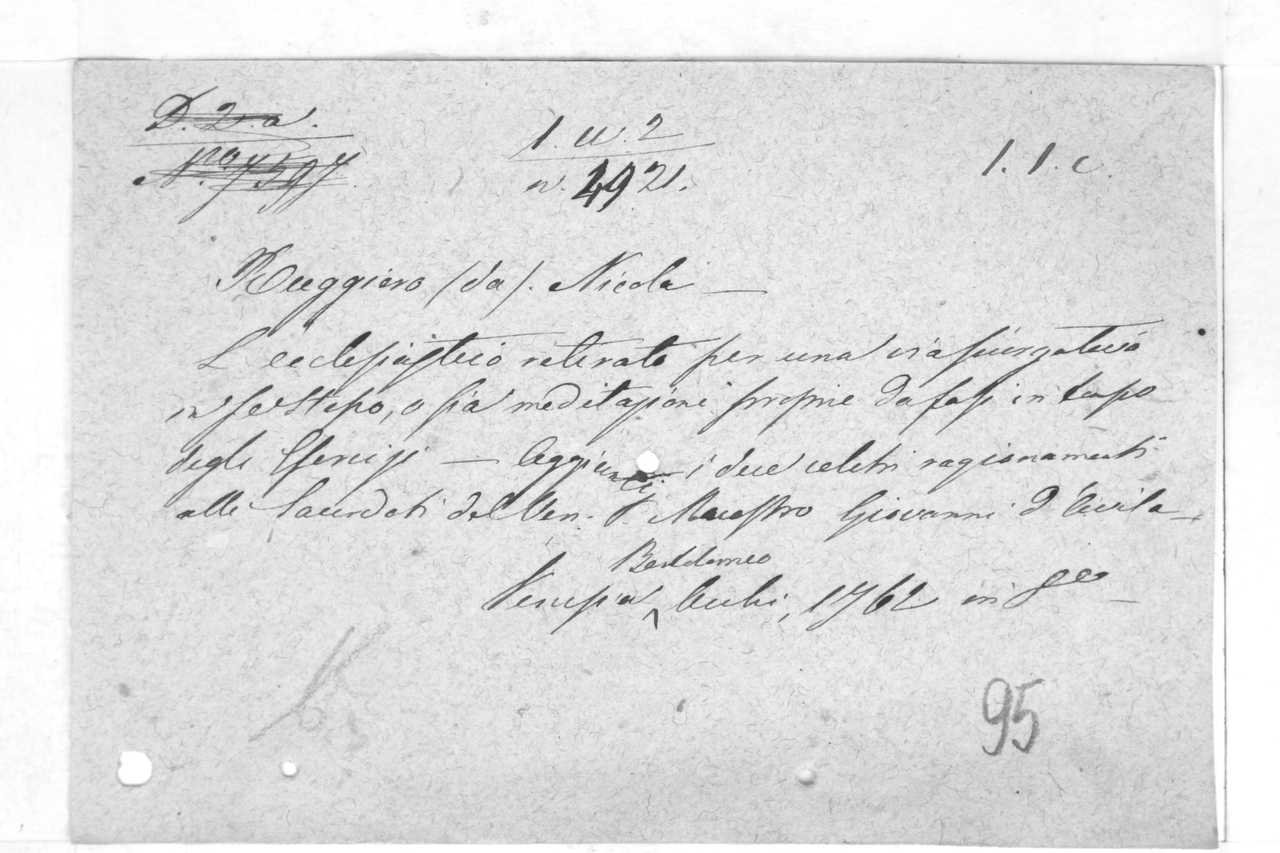 D. 2. a.
N.ro 7597.
1. a. 2
n. 4921.
1. 1. c.
Ruggiero (da). Nicola —
L'ecclesiastico ritirato per una via purgativa
in se stesso, o sia meditazioni proprie da farsi in tempo
degli Esercizj — Aggiunti i due celebri ragionamenti
alli Sacerdoti del Ven. P. Maestro Giovanni d'Avila —
Bartolomeo
Venezia Occhi, 1762 in 8°
95